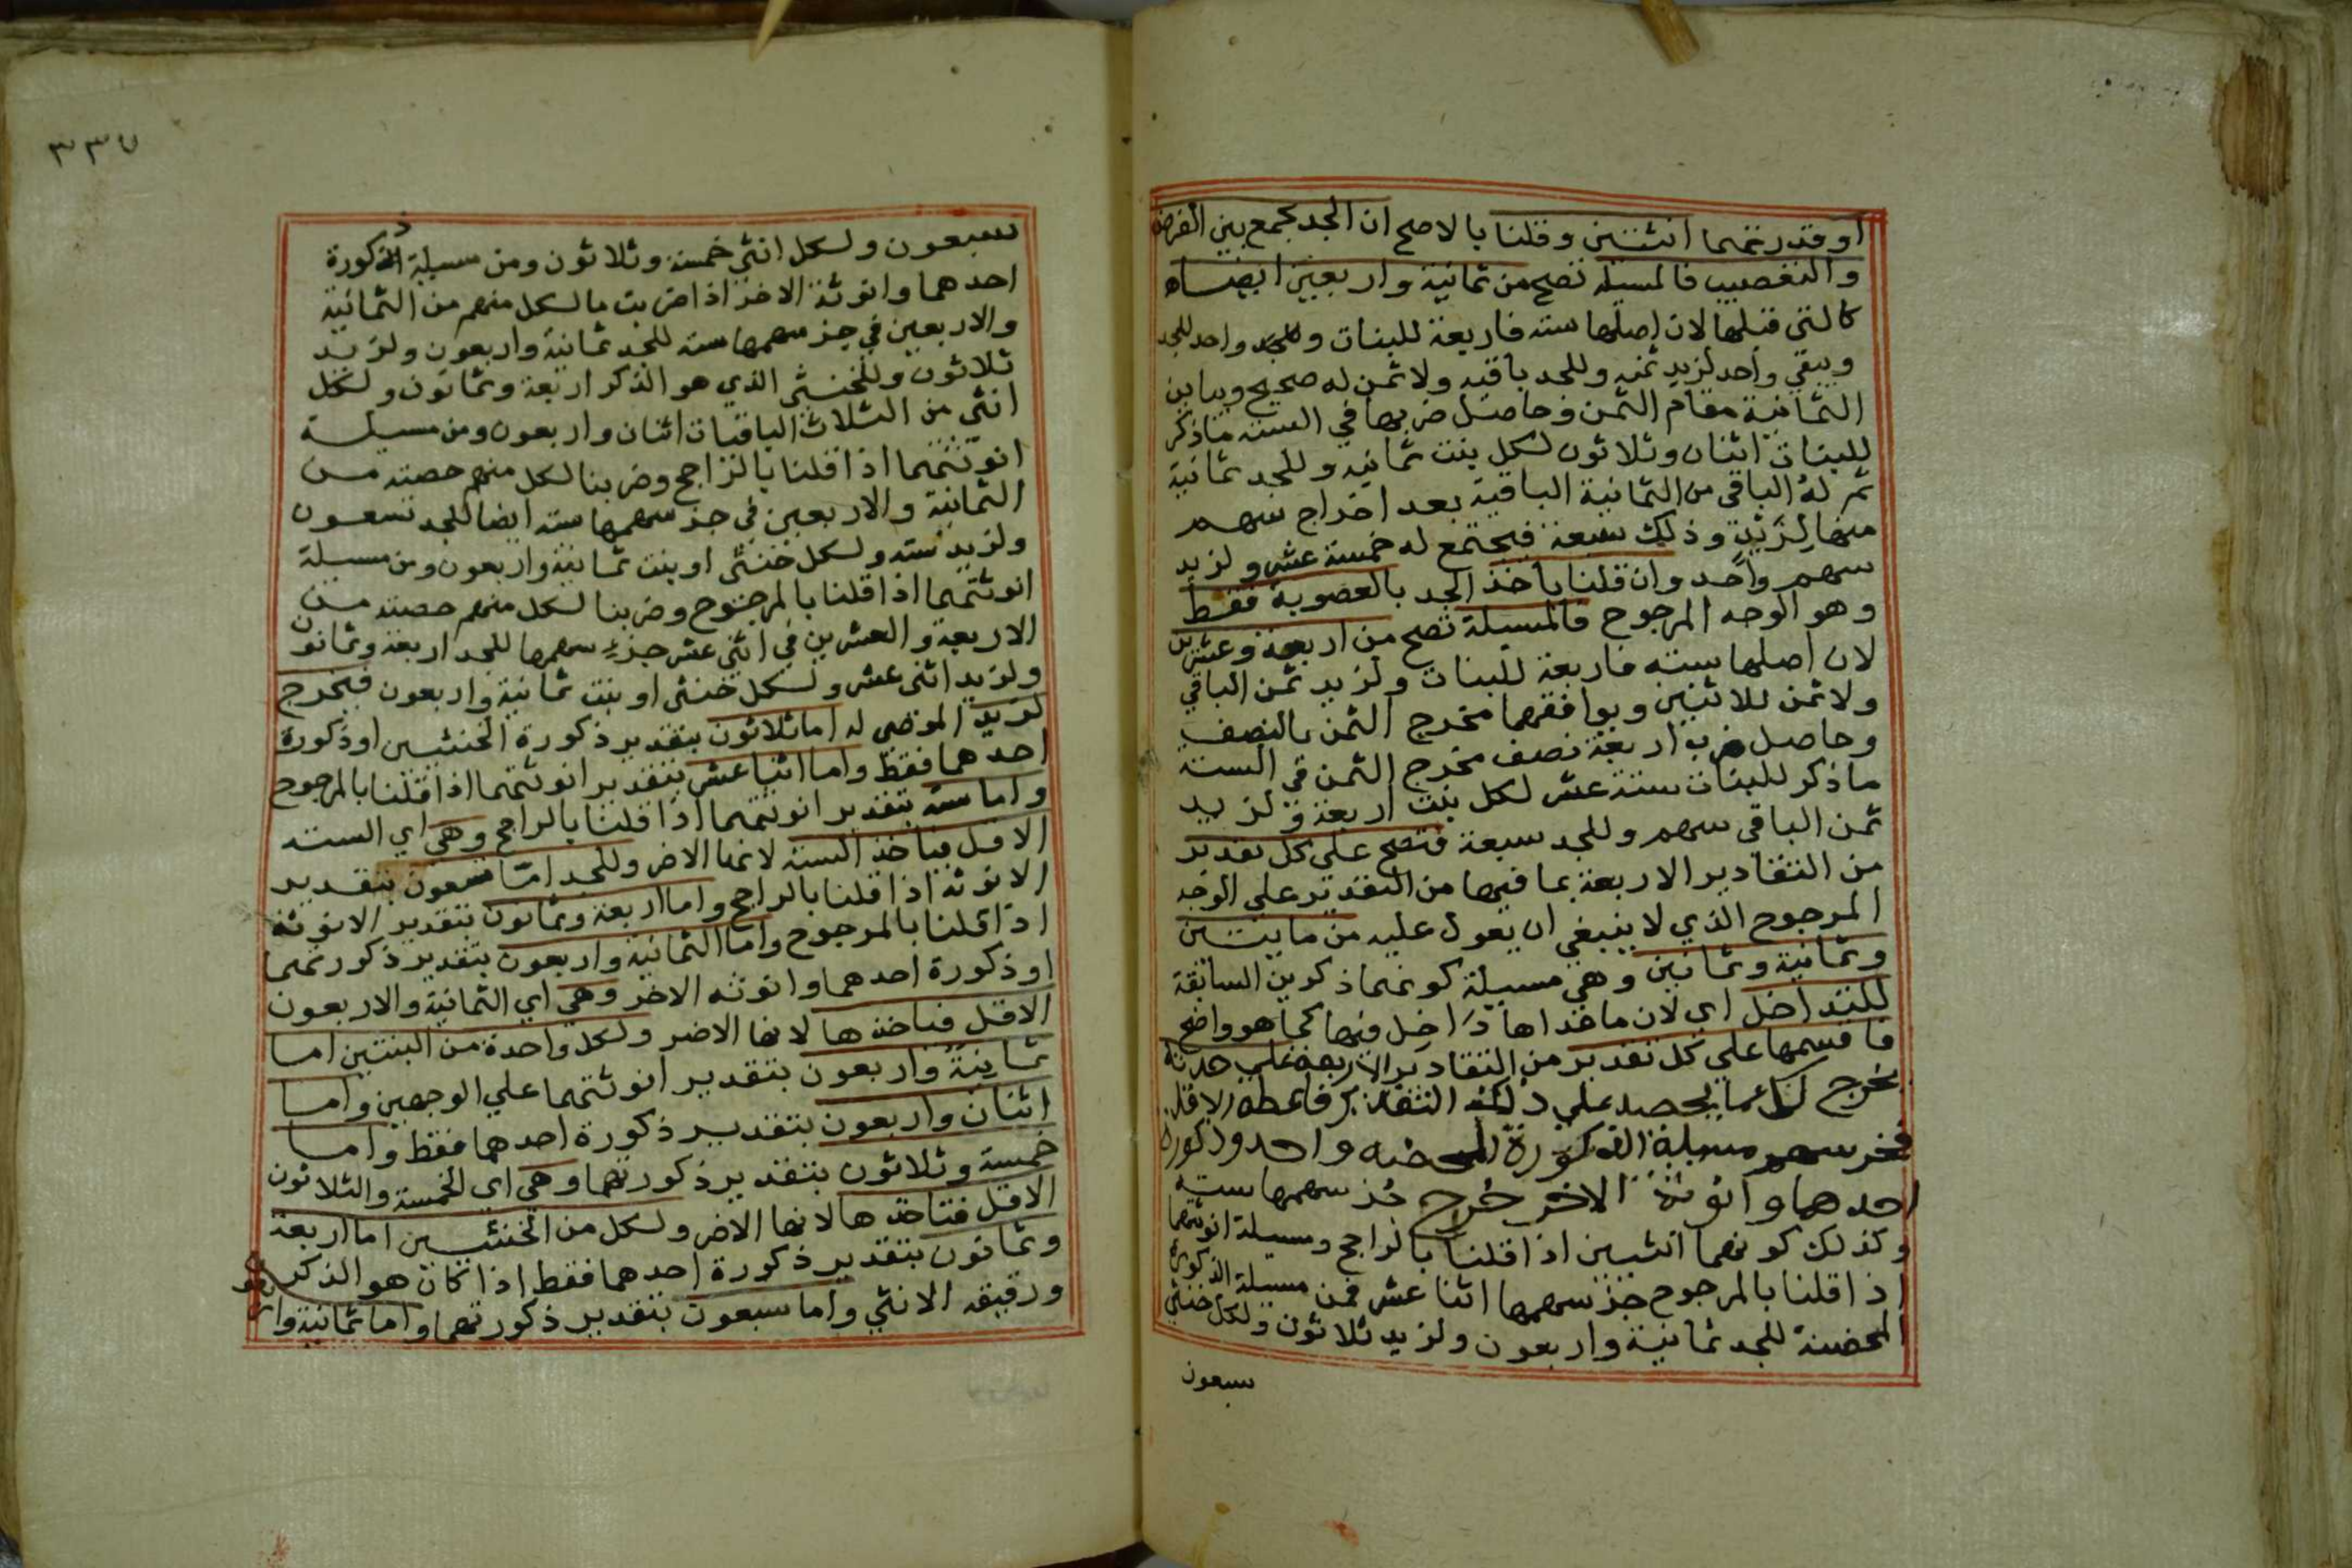 او قدرتهما انثتين وقلنا بالاصح ان الجد يجمع بين الفرض
والتعصيب فالمسيلة تصح من ثمانية واربعين ايضاه
كالتي قبلها لان اصلها سته فاربعة للبنات وللجد واحد للجد
ويبقي واحد لزيد ثمنه وللجد باقيه ولا ثمن له صحيح ويباين
الثمانية مقام الثمن فحاصل ضربها في السته ماذكر
للبنات اثنان وثلاثون لكل بنت ثمانية وللجد ثمانية
ثم له الباقي من الثمانية الباقية بعد اخراج سهم
منها لزيد وذلك سبعة فيجتمع له خمسة عشر ولزيد
سهم واحد وان قلنا ياخذ الجد بالعصوبة فقط
وهو الوجه المرجوح فالمسيلة تصح من اربعة وعشرين
لان اصلها سته فاربعة للبنات ولزيد ثمن الباقي
ولا ثمن للاثنين ويوافقهما مخرج الثمن بالنصف
وحاصل ضرب اربعة نصف مخرج الثمن في الستة
ماذكر للبنات ستة عشر لكل بنت اربعة ولزيد
ثمن الباقي سهم وللجد سبعة فتصح علي كل تقدير
من التقادير الاربعة بما فيها من التقدير علي الوجه
المرجوح الذي لا ينبغي ان يعول عليه من مايتين
وثمانية وثمانين وهي مسيلة كونهما ذكرين السابقة
للتداخل اي لان ماعداها داخل فيها كما هو واضح
فاقسمها علي كل تقدير من التقادير الاربعة علي حدته
يخرج لكل ما يحصه علي ذلك التقدير فاعطه الاقل
فجز سهم مسيلة الذكورة المحضه واحد وذكورة
احدهما وانوثة الاخر خرج جز سهمها سته
وكذلك كونهما انثيين اذا قلنا بالراجح ومسيلة انوثتهما
اذا قلنا بالمرجوح جز سهمها اثنا عشر فمن مسيلة الذكورة
المحضة للجد ثمانية واربعون ولزيد ثلاثون ولكل خنثي
سبعون
٣٣٧
سبعون ولكل انثي خمسة وثلاثون ومن مسيلة الذكورة
احدهما وانوثة الاخر اذا ضربت مالكل منهم من الثمانية
والاربعين في جز سهمها سته للجد ثمانية واربعون ولزيد
ثلاثون وللخنثي الذي هو الذكر اربعة وثمانون ولكل
انثي من الثلاث الباقيات اثنان واربعون ومن مسيلة
انوثتهما اذا قلنا بالراجح وضربنا لكل منهم حصته من
الثمانية والاربعين في جز سهمها سته ايضا للجد تسعون
ولزيد سته ولكل خنثي او بنت ثمانية واربعون ومن مسيلة
انوثتهما اذا قلنا بالمرجوح وضربنا لكل منهم حصته من
الاربعة والعشرين في اثني عشر جزء سهمها للجد اربعة وثمانون
ولزيد اثني عشر ولكل خنثي او بنت ثمانية واربعون فيخرج
لزيد الموصي له اما ثلاثون بتقدير ذكورة الخنثيين او ذكورة
احدهما فقط واما اثنا عشر بتقدير انوثتهما اذا قلنا بالمرجوح
واما سته بتقدير انوثتهما اذا قلنا بالراجح وهي اي السته
الاقل فياخذ السته لانها الاضر وللجد اما تسعون بتقدير
الانوثة اذا قلنا بالراجح واما اربعة وثمانون بتقدير الانوثة
اذا قلنا بالمرجوح واما الثمانية واربعون بتقدير ذكورتهما
او ذكورة احدهما وانوثه الاخر وهي اي الثمانية والاربعون
الاقل فياخذها لانها الاضر ولكل واحدة من البنتين اما
ثمانية واربعون بتقدير انوثتهما علي الوجهين واما
اثنان واربعون بتقدير ذكورة احدهما فقط واما
خمسة وثلاثون بتقدير ذكورتهما وهي اي الخمسة والثلاثون
الاقل فتاخذها لانها الاضر ولكل من الخنثيين اما اربعة
وثمانون بتقدير ذكورة احدهما فقط اذا كان هو الذكر
ورفيقه الانثي واما سبعون بتقدير ذكورتهما واما ثمانية وار